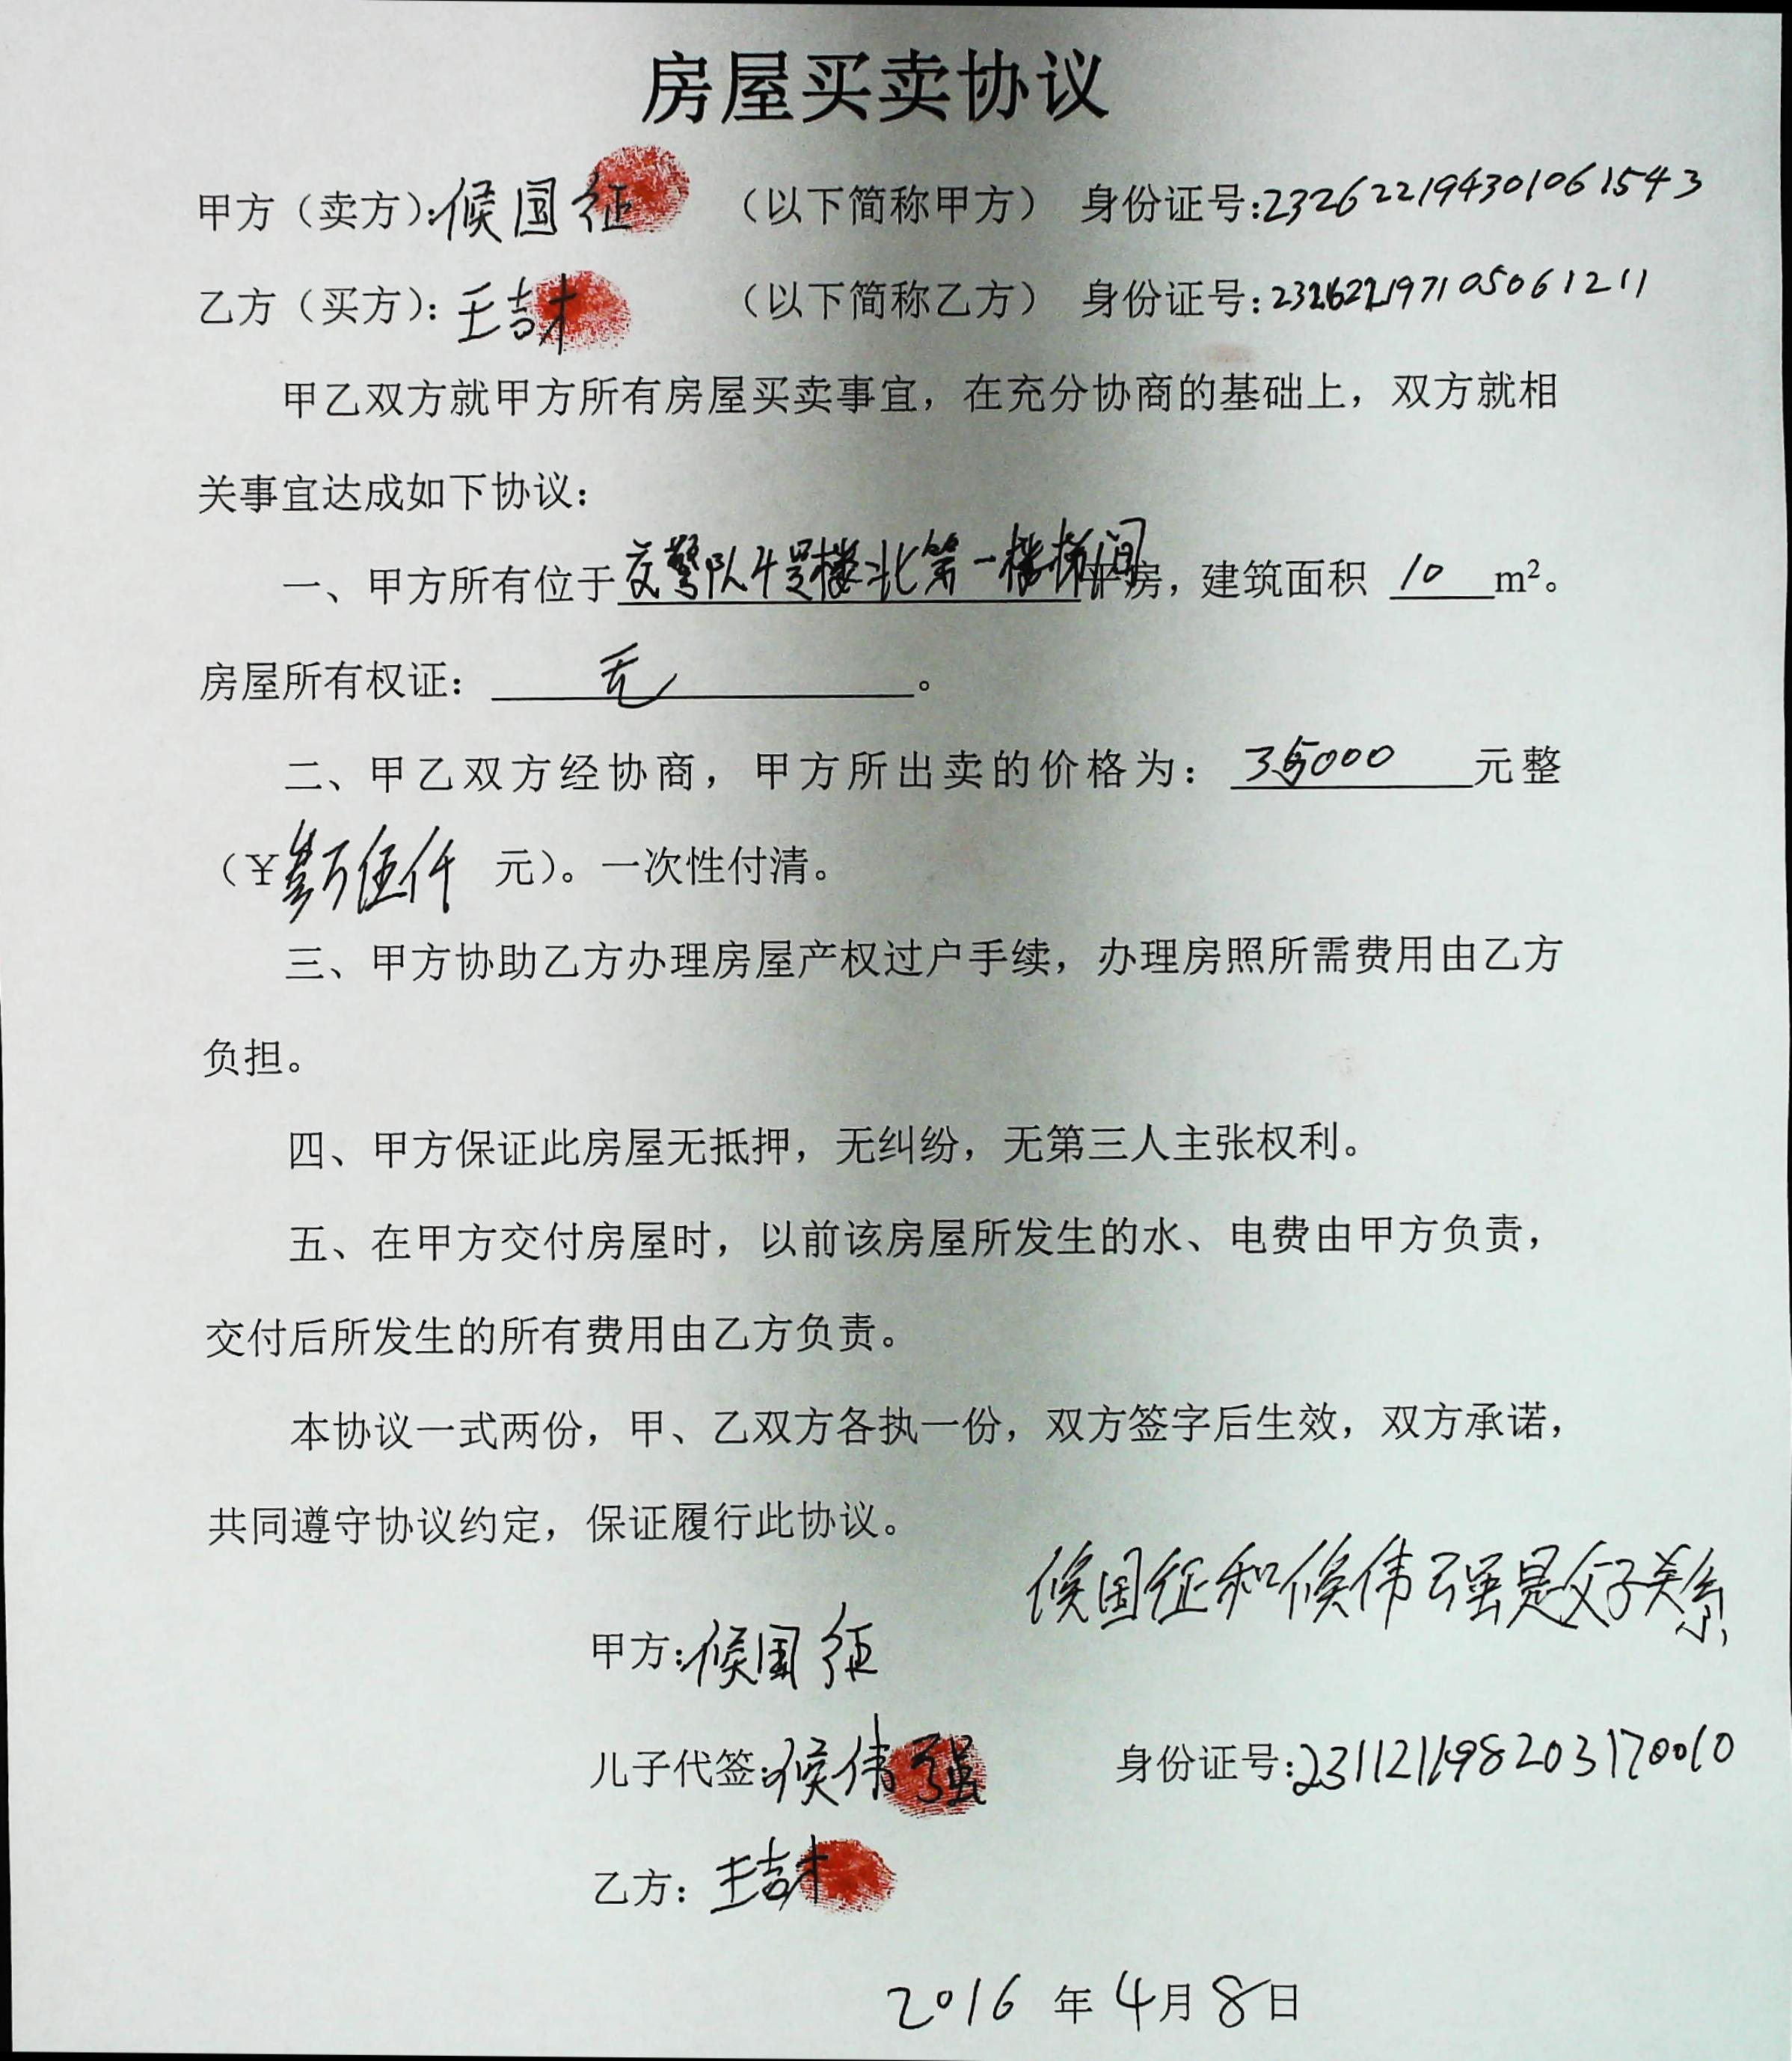 房屋买卖协议
甲方（卖方）：候国征 （以下简称甲方） 身份证号：232622194301061543
乙方（买方）：王喆 （以下简称乙方） 身份证号：232622197105061211
甲乙双方就甲方所有房屋买卖事宜，在充分协商的基础上，双方就相
关事宜达成如下协议：
一、甲方所有位于交警队4号楼北第一楼梯间平房，建筑面积 10 m²。
房屋所有权证： 无 。
二、甲乙双方经协商，甲方所出卖的价格为： 35000 元整
（¥叁万伍仟 元）。一次性付清。
三、甲方协助乙方办理房屋产权过户手续，办理房照所需费用由乙方
负担。
四、甲方保证此房屋无抵押，无纠纷，无第三人主张权利。
五、在甲方交付房屋时，以前该房屋所发生的水、电费由甲方负责，
交付后所发生的所有费用由乙方负责。
本协议一式两份，甲、乙双方各执一份，双方签字后生效，双方承诺，
共同遵守协议约定，保证履行此协议。
候国征和候伟强是父子关系
甲方：候国征
儿子代签：候伟强 身份证号：231121198203170010
乙方：王吉才
2016 年 4月 8日